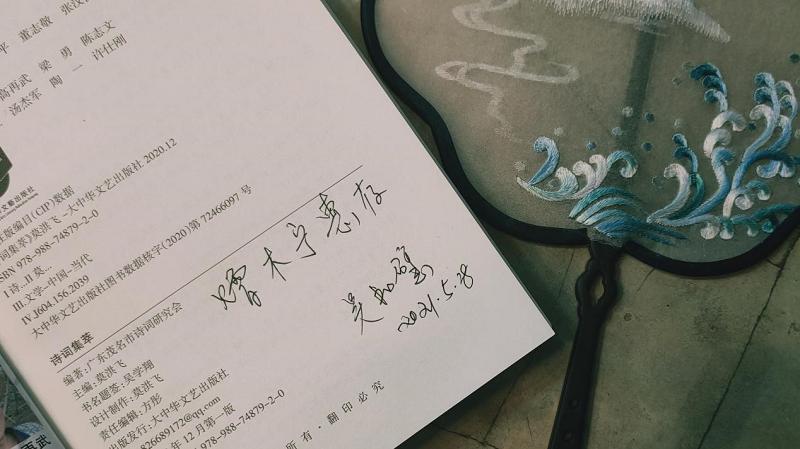 平 董志敏 张汉
高再武 梁 勇 陈志文
汤杰军 陶 一 许仕刚
出版社
版编目(CIP)数据
词集萃》莫洪飞-大中华文艺出版社2020.12
ISBN 978-988-74879-2-0
I诗...II.莫...
III.文学-中国-当代
IV.J604.156.2039
大中华文艺出版社图书数据核字(2020)第72466097号
木宁惠存
2021.5.28
诗词集萃
编著:广东茂名市诗词研究会
主编:莫洪飞
书名题签:吴学翔
设计制作:莫洪飞
责任编辑:方彤
出版发行:大中华文艺出版社
826689172@qq.com
年12月第一版
978-988-74879-2-0
所有·翻印必究
再武